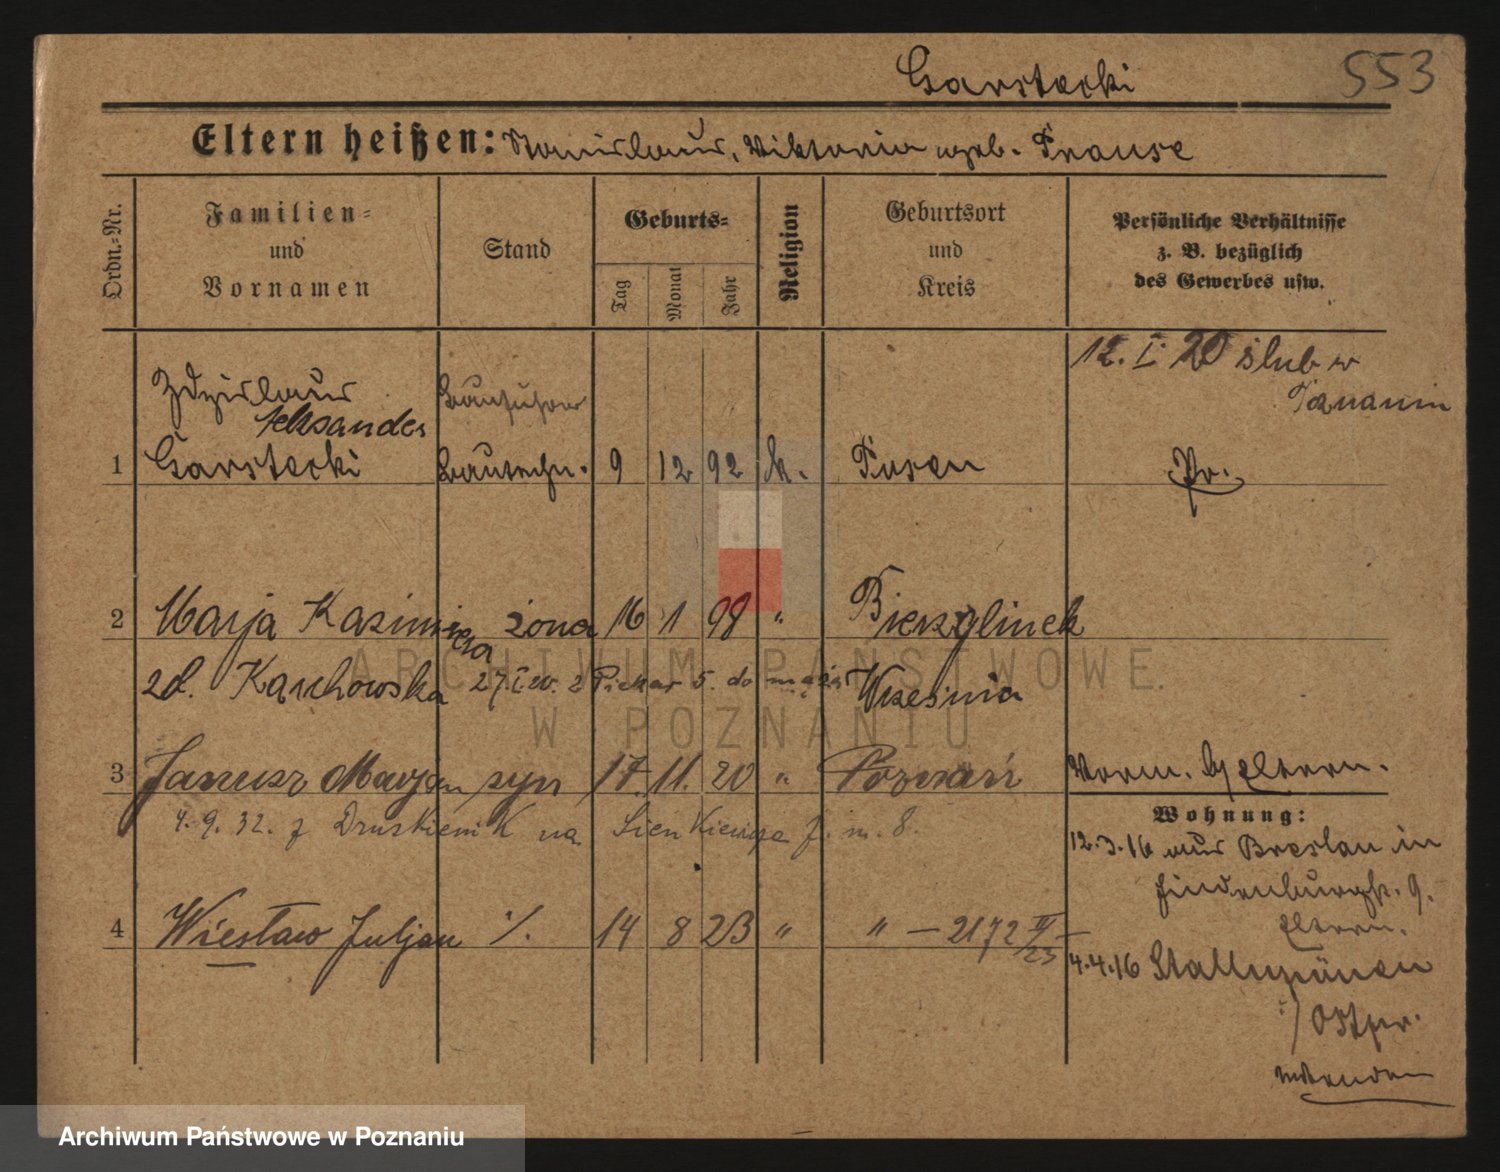 Garstecki 553
Eltern heißen: Stanislaus, Viktoria geb. Krause
Ordn.-Nr.
Familien-
und
Vornamen
Stand
Geburts-
Tag
Monat
Jahr
Religion
Geburtsort
und
Kreis
Persönliche Verhältnisse
z. B. bezüglich
des Gewerbes usw.
12. I. 20 ślub w
Zdzislaus Bauführer
Aleksander
1 Garstecki Bautechn. 9 12 92 k. Posen Pr.
2 Marja Kazimiera żona 16 1 98 " Bierzglinek
zd. Karchowska 27. I. w. 2 Piekar 5. do męża Września
3 Janusz Marjan syn 17. 11. 20 " Poznań Vorm. b/ Eltern.
4. 9. 32. z Druskienik na Sienkiewicza 7. m. 8.
Wohnung:
12.3.16 aus Breslau in
Hindenburgstr. 9.
Eltern.
4 Wiesław Juljan ./. 14 8 23 " " — 2172 IV/23 —
4.4.16 Stallupönen
i/ Ostpr.
ARCHIWUM PAŃSTWOWE
W POZNANIU
Archiwum Państwowe w Poznaniu